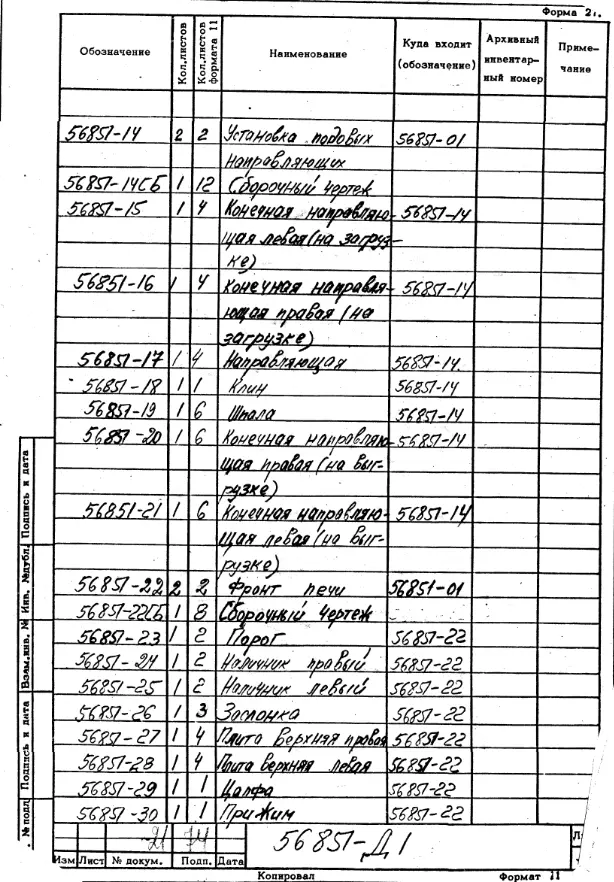 Форма 2
Обозначение Кол.листов Кол.листов формата 11 Наименование Куда входит (обозначение) Архивный инвентарный номер Примечание
56851-14 2 2 Установка подовых 56851-01
направляющих
56851-14СБ 1 12 Сборочный чертеж
56851-15 1 4 Конечная направляю- 56851-14
щая левая (на загруз-
ке)
56851-16 1 4 Конечная направля- 56851-14
ющая правая (на
загрузке)
56851-17 1 4 Направляющая 56851-14
56851-18 1 1 Клин 56851-14
56851-19 1 6 Шпала 56851-14
56851-20 1 6 Конечная направляю- 56851-14
щая правая (на выг-
рузке)
56851-21 1 6 Конечная направляю- 56851-14
щая левая (на выг-
рузке)
56851-22 2 2 Фронт печи 56851-01
56851-22СБ 1 8 Сборочный чертеж
56851-23 1 2 Порог 56851-22
56851-24 1 2 Наличник правый 56851-22
56851-25 1 2 Наличник левый 56851-22
56851-26 1 3 Заслонка 56851-22
56851-27 1 4 Плита верхняя правая 56851-22
56851-28 1 4 Плита верхняя левая 56851-22
56851-29 1 1 Цапфа 56851-22
56851-30 1 1 Прижим 56851-22
56851-Д1
Изм Лист № докум. Подп. Дата
Копировал Формат 11
№ подл Подпись и дата Взам.инв. № Инв. №дубл. Подпись и дата